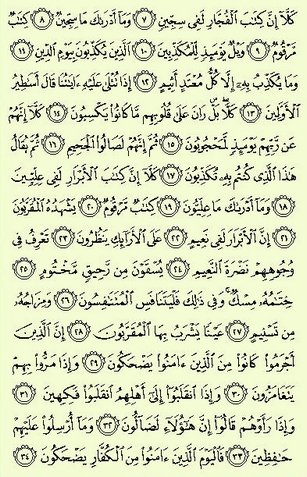 كَلَّآ إِنَّ كِتَٰبَ ٱلْفُجَّارِ لَفِى سِجِّينٍ ٧ وَمَآ أَدْرَىٰكَ مَا سِجِّينٌ ٨ كِتَٰبٌ
مَّرْقُومٌ ٩ وَيْلٌ يَوْمَئِذٍ لِّلْمُكَذِّبِينَ ١٠ ٱلَّذِينَ يُكَذِّبُونَ بِيَوْمِ ٱلدِّينِ ١١
وَمَا يُكَذِّبُ بِهِۦٓ إِلَّا كُلُّ مُعْتَدٍ أَثِيمٍ ١٢ إِذَا تُتْلَىٰ عَلَيْهِ ءَايَٰتُنَا قَالَ أَسَٰطِيرُ
ٱلْأَوَّلِينَ ١٣ كَلَّا بَلْ رَانَ عَلَىٰ قُلُوبِهِم مَّا كَانُوا۟ يَكْسِبُونَ ١٤ كَلَّآ إِنَّهُمْ
عَن رَّبِّهِمْ يَوْمَئِذٍ لَّمَحْجُوبُونَ ١٥ ثُمَّ إِنَّهُمْ لَصَالُوا۟ ٱلْجَحِيمِ ١٦ ثُمَّ يُقَالُ
هَٰذَا ٱلَّذِى كُنتُم بِهِۦ تُكَذِّبُونَ ١٧ كَلَّآ إِنَّ كِتَٰبَ ٱلْأَبْرَارِ لَفِى عِلِّيِّينَ
١٨ وَمَآ أَدْرَىٰكَ مَا عِلِّيُّونَ ١٩ كِتَٰبٌ مَّرْقُومٌ ٢٠ يَشْهَدُهُ ٱلْمُقَرَّبُونَ
٢١ إِنَّ ٱلْأَبْرَارَ لَفِى نَعِيمٍ ٢٢ عَلَى ٱلْأَرَآئِكِ يَنظُرُونَ ٢٣ تَعْرِفُ فِى
وُجُوهِهِمْ نَضْرَةَ ٱلنَّعِيمِ ٢٤ يُسْقَوْنَ مِن رَّحِيقٍ مَّخْتُومٍ ٢٥
خِتَٰمُهُۥ مِسْكٌ وَفِى ذَٰلِكَ فَلْيَتَنَافَسِ ٱلْمُتَنَٰفِسُونَ ٢٦ وَمِزَاجُهُۥ
مِن تَسْنِيمٍ ٢٧ عَيْنًا يَشْرَبُ بِهَا ٱلْمُقَرَّبُونَ ٢٨ إِنَّ ٱلَّذِينَ
أَجْرَمُوا۟ كَانُوا۟ مِنَ ٱلَّذِينَ ءَامَنُوا۟ يَضْحَكُونَ ٢٩ وَإِذَا مَرُّوا۟ بِهِمْ
يَتَغَامَزُونَ ٣٠ وَإِذَا ٱنقَلَبُوٓا۟ إِلَىٰٓ أَهْلِهِمُ ٱنقَلَبُوا۟ فَكِهِينَ ٣١
وَإِذَا رَأَوْهُمْ قَالُوٓا۟ إِنَّ هَٰٓؤُلَآءِ لَضَآلُّونَ ٣٢ وَمَآ أُرْسِلُوا۟ عَلَيْهِمْ
حَٰفِظِينَ ٣٣ فَٱلْيَوْمَ ٱلَّذِينَ ءَامَنُوا۟ مِنَ ٱلْكُفَّارِ يَضْحَكُونَ ٣٤